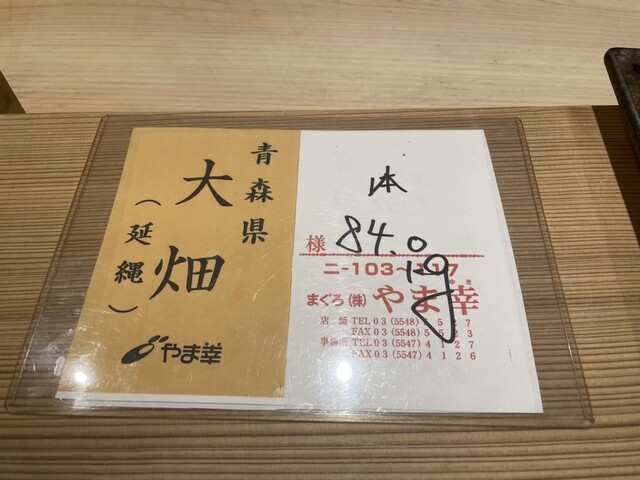 青森県
大畑
（延縄）
やま幸
本
様 84.0
ニ-103～117
まぐろ（株）やま幸
ゆき
店舗 TEL 03 (5548)
FAX 03 (5548)
事務所 TEL 03 (5547) 4127
FAX 03 (5547) 4126